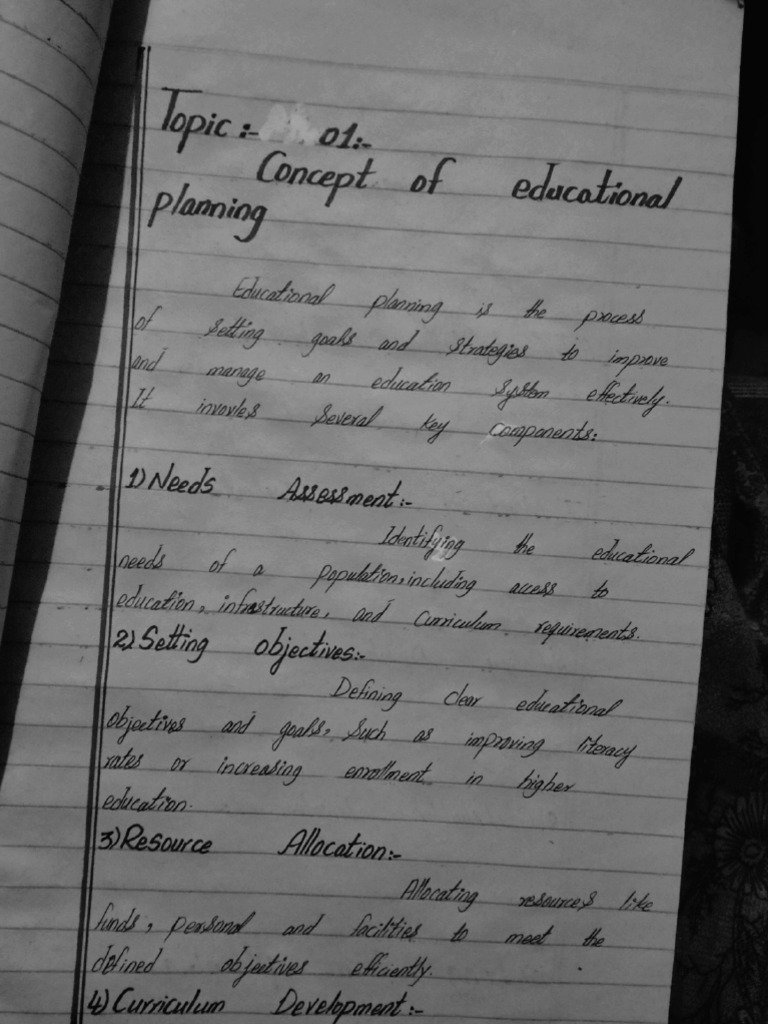 Topic :- 01:-
Concept of educational
planning
Educational planning is the process
of setting goals and strategies to improve
and manage an education system effectively.
It invovles several key components:
1) Needs Assessment:-
Identifying the educational
needs of a population, including access to
education, infrastructure, and curriculum requirements.
2) Setting objectives:-
Defining clear educational
objectives and goals, such as improving literacy
rates or increasing enrollment in higher
education.
3) Resource Allocation:-
Allocating resources like
funds, personal and facilities to meet the
defined objectives efficiently.
4) Curriculum Development:-